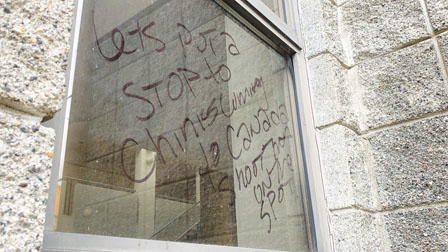 Lets put a
STOP to
Chines coming
to Canada
Shoot
on the
spo